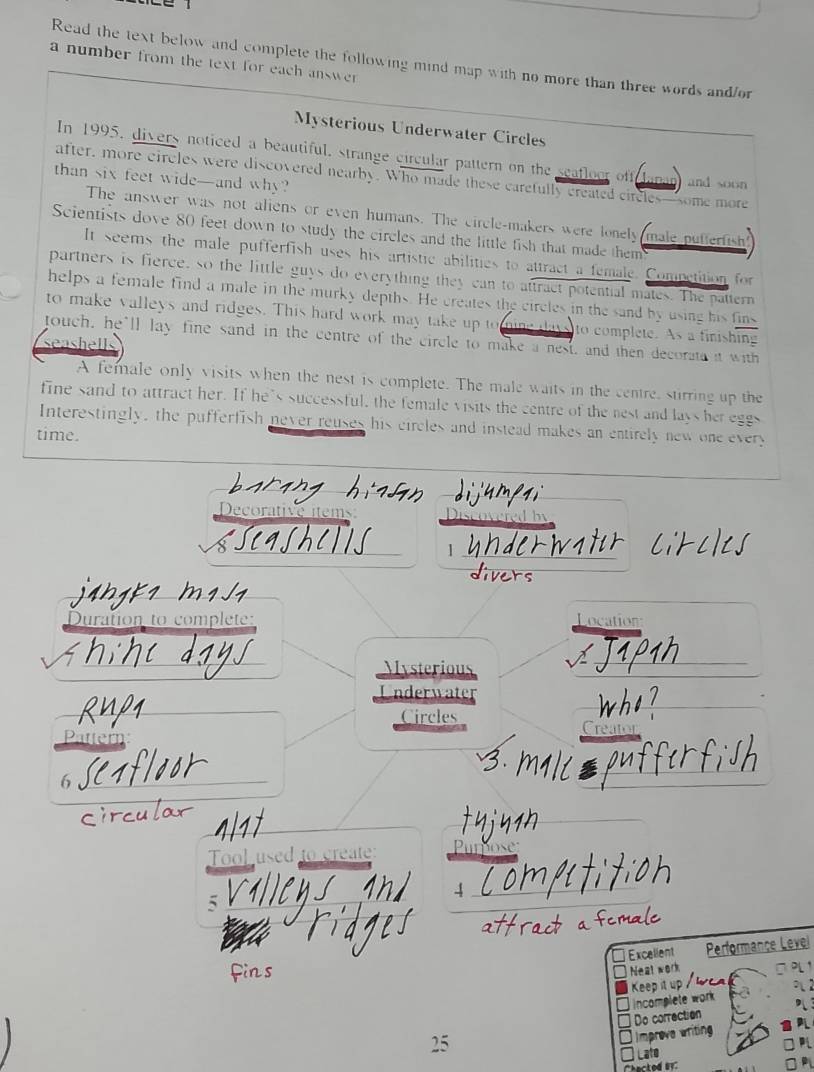 Read the text below and complete the following mind map with no more than three words and/or
a number from the text for each answer
Mysterious Underwater Circles
In 1995, divers noticed a beautiful, strange circular pattern on the seafloor off Japan and soon
after, more circles were discovered nearby. Who made these carefully created circles—some more
than six feet wide—and why?
The answer was not aliens or even humans. The circle-makers were lonely male pufferfish!
Scientists dove 80 feet down to study the circles and the little fish that made them.
It seems the male pufferfish uses his artistic abilities to attract a female. Competition for
partners is fierce, so the little guys do everything they can to attract potential mates. The pattern
helps a female find a male in the murky depths. He creates the circles in the sand by using his fins
to make valleys and ridges. This hard work may take up to nine days to complete. As a finishing
touch, he'll lay fine sand in the centre of the circle to make a nest, and then decorate it with
seashells
A female only visits when the nest is complete. The male waits in the centre, stirring up the
fine sand to attract her. If he's successful, the female visits the centre of the nest and lays her eggs
Interestingly, the pufferfish never reuses his circles and instead makes an entirely new one every
time.
barang hiasan dijumpai
Decorative items: Discovered by
8 seashells 1 underwater circles
divers
jangka masa
Duration to complete: Location:
nine days 2 Japan
Mysterious
Underwater
Circles
Rupa who?
Pattern: Creator
6 seafloor 3. male pufferfish
circular
alat tujuan
Tool used to create: Purpose:
5 valleys and 4 competition
ridges attract a female
fins
Excellent Performance Level
Neat work PL 1
Keep it up / weak PL 2
Incomplete work PL 3
Do correction PL
Improve writing PL
Late PL
Checked by:
25